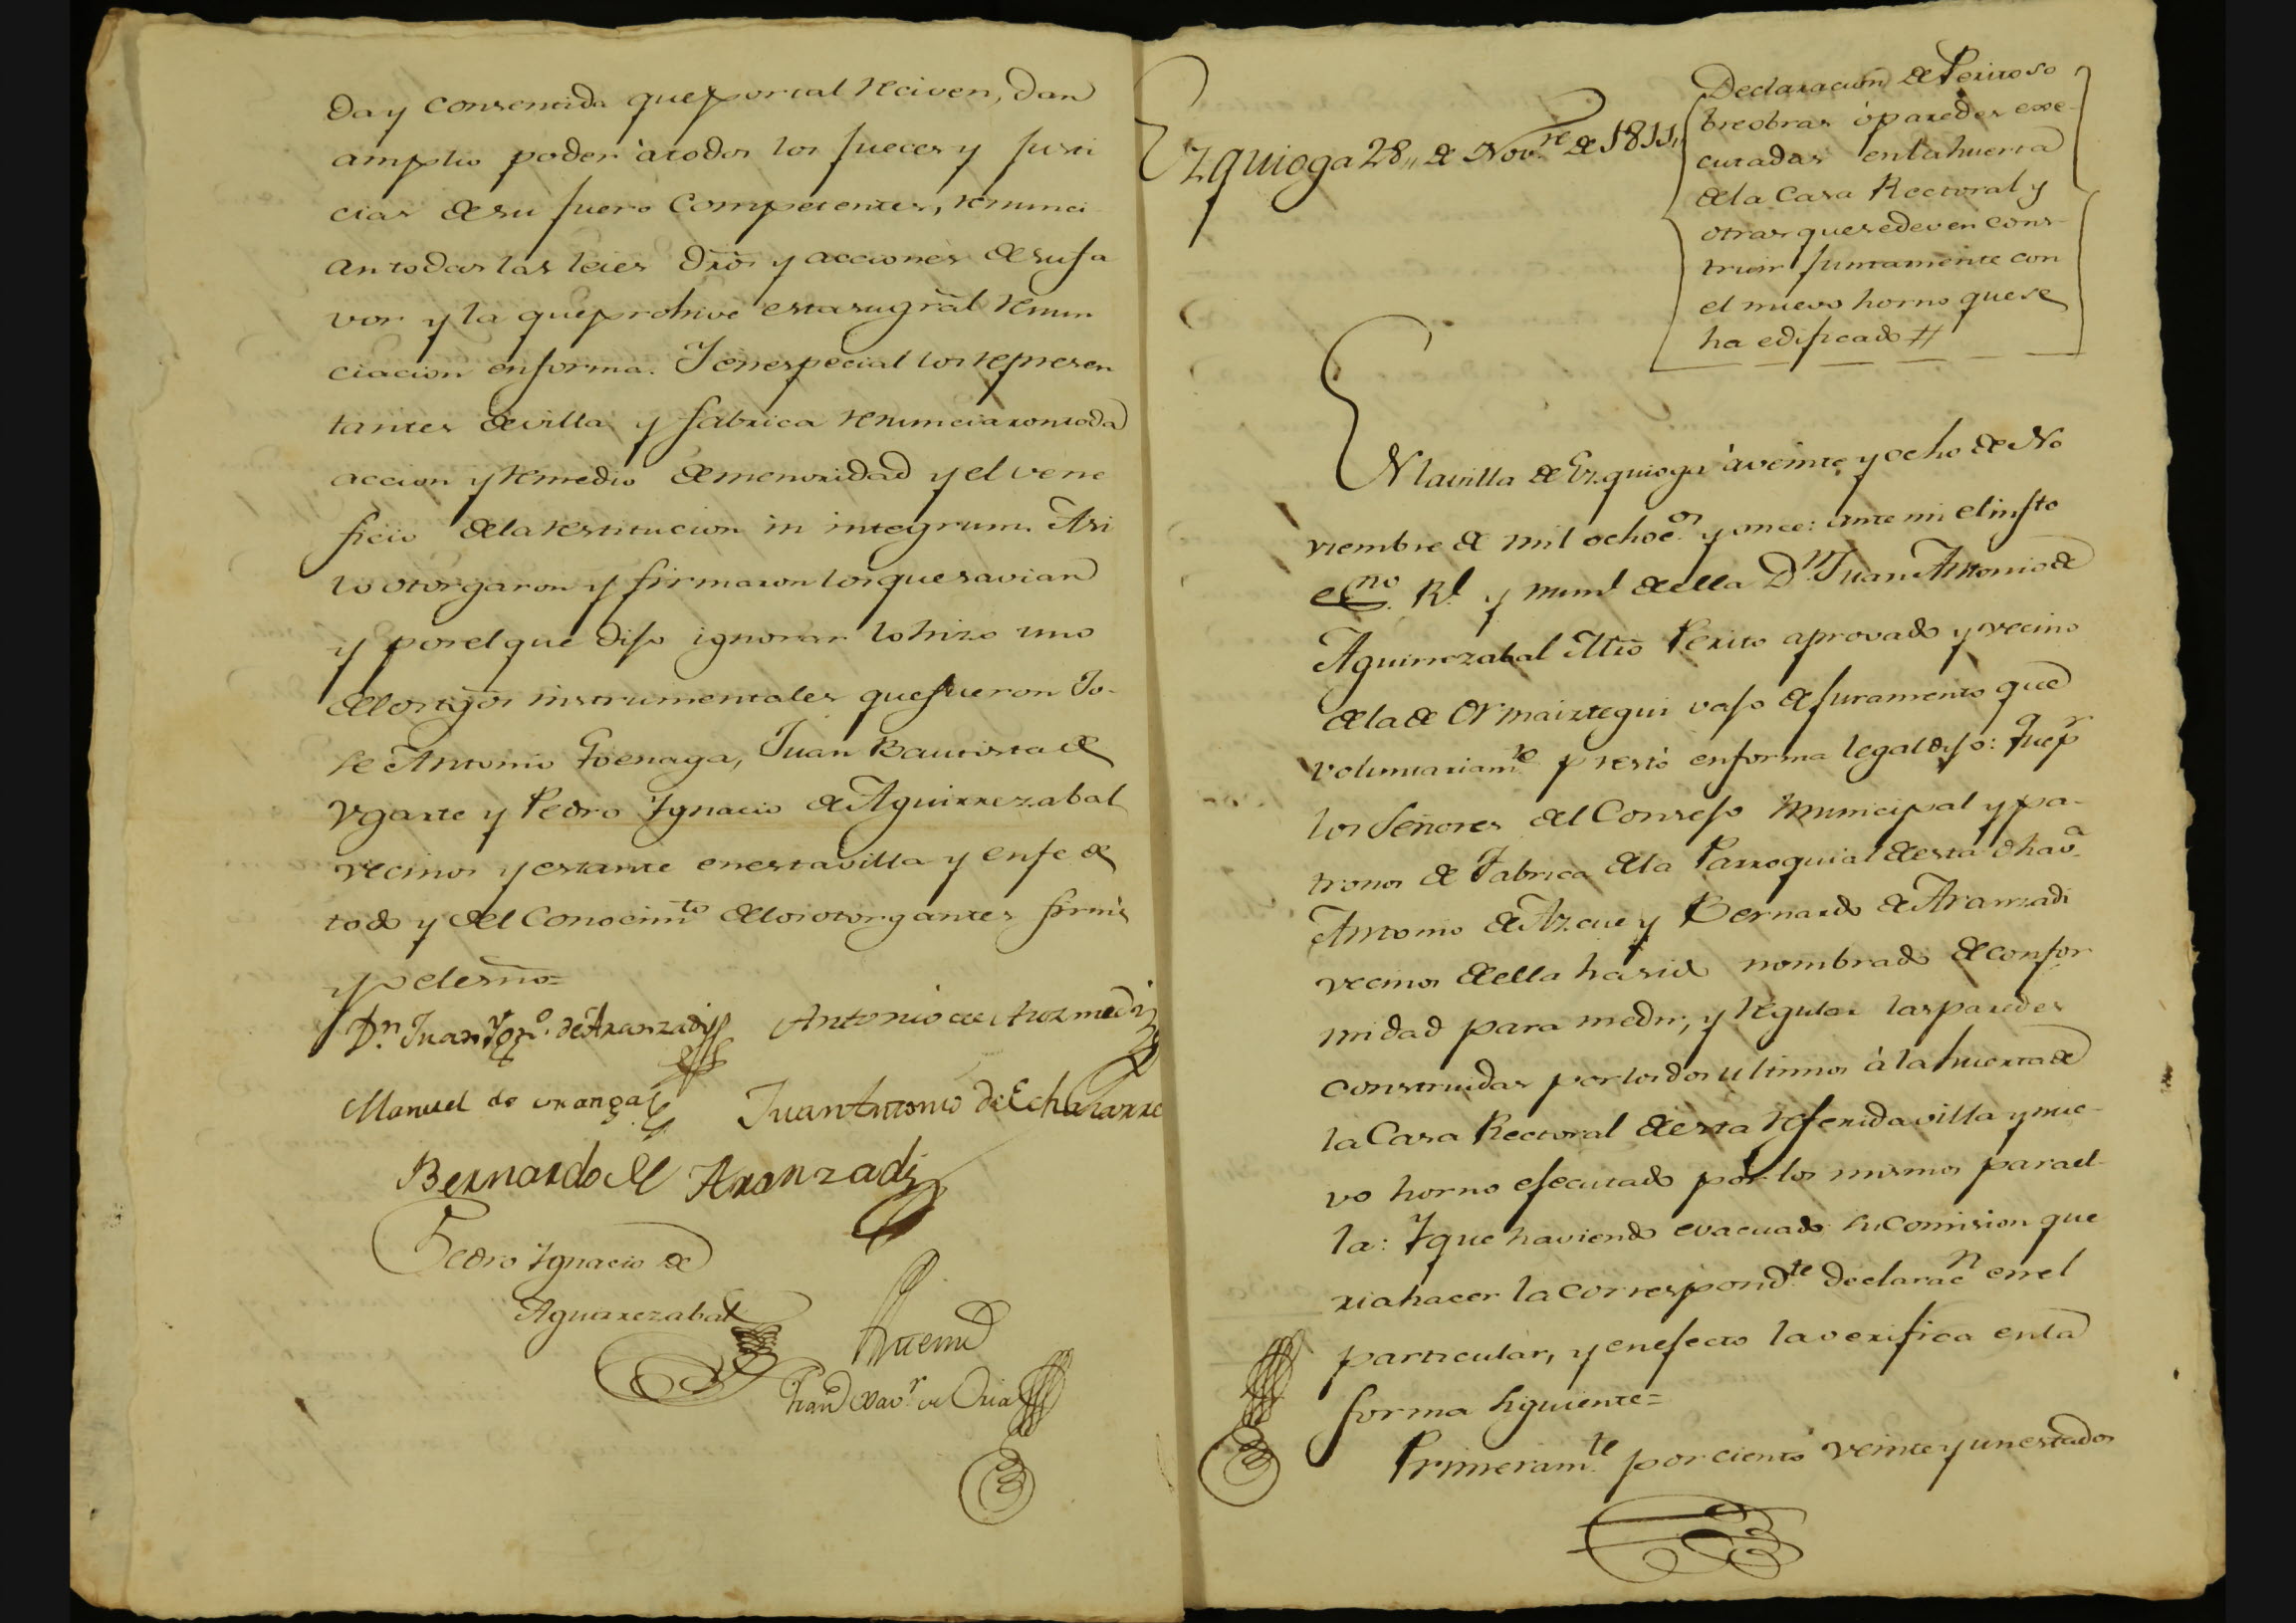 da y consentida que por tal reciven, dan
amplio poder à todos los Jueces y Justi
cias de su fuero Competentes, renunci
an todas las leies dr̃os y acciones de su fa
vor y la que prohive esta su gr̃al renun
ciacion en forma. Y en especial los represen
tantes de villa y fabrica renunciaron toda
accion y remedio de menoridad y el vene
ficio de la restitucion in integrum. Asi
lo otorgaron y firmaron los que savian
y por el que dijo ignorar lo hizo uno
de los tgõs instrumentales que fueron Jo-
se Antonio Goenaga, Juan Bautista de
Ugarte y Pedro Ygnacio de Aguirrezabal
vecinos y estante en esta villa y en fe de
todo y del Conocimto de los otorgantes firmè
yo el esno=
Dn. Juan Ygno. de Aranzadi Antonio de
Manuel de uranga Juan Antonio de Echazarre
Bernardo de Aranzadi
Pedro Ygnacio de
Aguirrezabal
Ante mi
Franco Xavr de Oria
Ezquioga 28,, de Novre de 1811,,
Declaracion de Perito so
bre obras ò paredes exe-
cutadas en la huerta
de la Casa Rectoral y
otras que se deven cons-
truir juntamente con
el nuevo horno que se
ha edificado #
EN la villa de Ezquioga à veinte y ocho de No
viembre de mil ochocos y once: ante mi el infto
esno. Rl. y numl de ella Dn Juan Antonio de
Aguirrezabal Mr̃o Perito aprovado y vecino
de la de Ormaiztegui vajo de juramento que
voluntariamte prestò en forma legal dijo: Que pr
los Señores del Consejo Municipal y pa-
tronos de Fabrica de la Parroquial de esta dha va
Antonio de Azcue y Bernardo de Aranzadi
vecinos de ella ha sido nombrado de confor
midad para medir, y regular las paredes
construidas por los dos ultimos à la huerta de
la Casa Rectoral de esta referida villa y nue-
vo horno ejecutado por los mismos para el-
la: Y que haviendo evacuado su comision que
ria hacer la correspondte declaracn en el
particular, y en efecto la verifica en la
forma siguiente=
Primeramte por ciento veinte y un estados